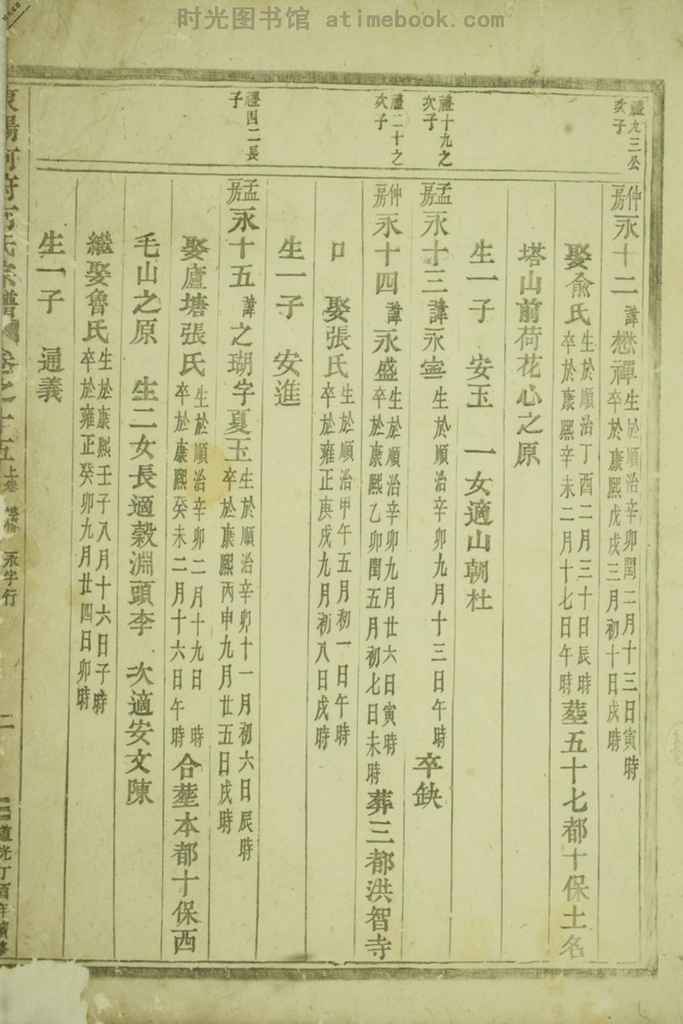 时光图书馆 atimebook.com
禮九三公
次子
仲房永十二 諱懋禪 生於順治辛卯閏二月十三日寅時
卒於康熙戊戌三月初十日戌時
娶俞氏 生於順治丁酉二月三十日辰時
卒於康熙辛未二月十七日午時 塟五十七都十保土名
塔山前荷花心之原
禮十九之
次子
孟房永十三 諱永寧 生於順治辛卯九月十三日午時 卒缺
生一子 安玉 一女適山朝杜
禮二十之
次子
仲房永十四 諱永盛 生於順治辛卯九月廿六日寅時
卒於康熙乙卯閏五月初七日未時 葬三都洪智寺
口 娶張氏 生於順治甲午五月初一日午時
卒於雍正庚戌九月初八日戌時
生一子 安進
禮四二長
子
孟房永十五 諱之瑚字夏玉 生於順治辛卯十一月初六日辰時
卒於康熙丙申九月廿五日戌時
娶廬塘張氏 生於順治辛卯二月十九日 時
卒於康熙癸未二月十六日午時 合塟本都十保西
毛山之原 生二女長適穀淵頭李 次適安文陳
繼娶魯氏 生於康熙壬子八月十六日子時
卒於雍正癸卯九月廿四日卯時
生一子 通義
氏宗譜 卷之十五 上卷 永字行 二 道光丁酉年續修